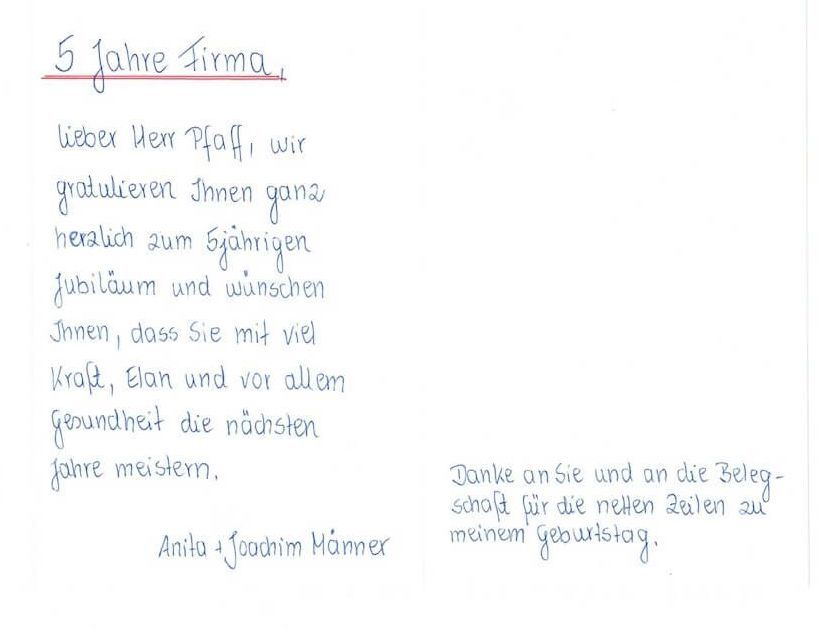 5 Jahre Firma,
lieber Herr Pfaff, wir
gratulieren Ihnen ganz
herzlich zum 5jährigen
Jubiläum und wünschen
Ihnen, dass Sie mit viel
Kraft, Elan und vor allem
Gesundheit die nächsten
Jahre meistern.
Anita + Joachim Männer
Danke an Sie und an die Beleg-
schaft für die netten Zeilen zu
meinem Geburtstag.